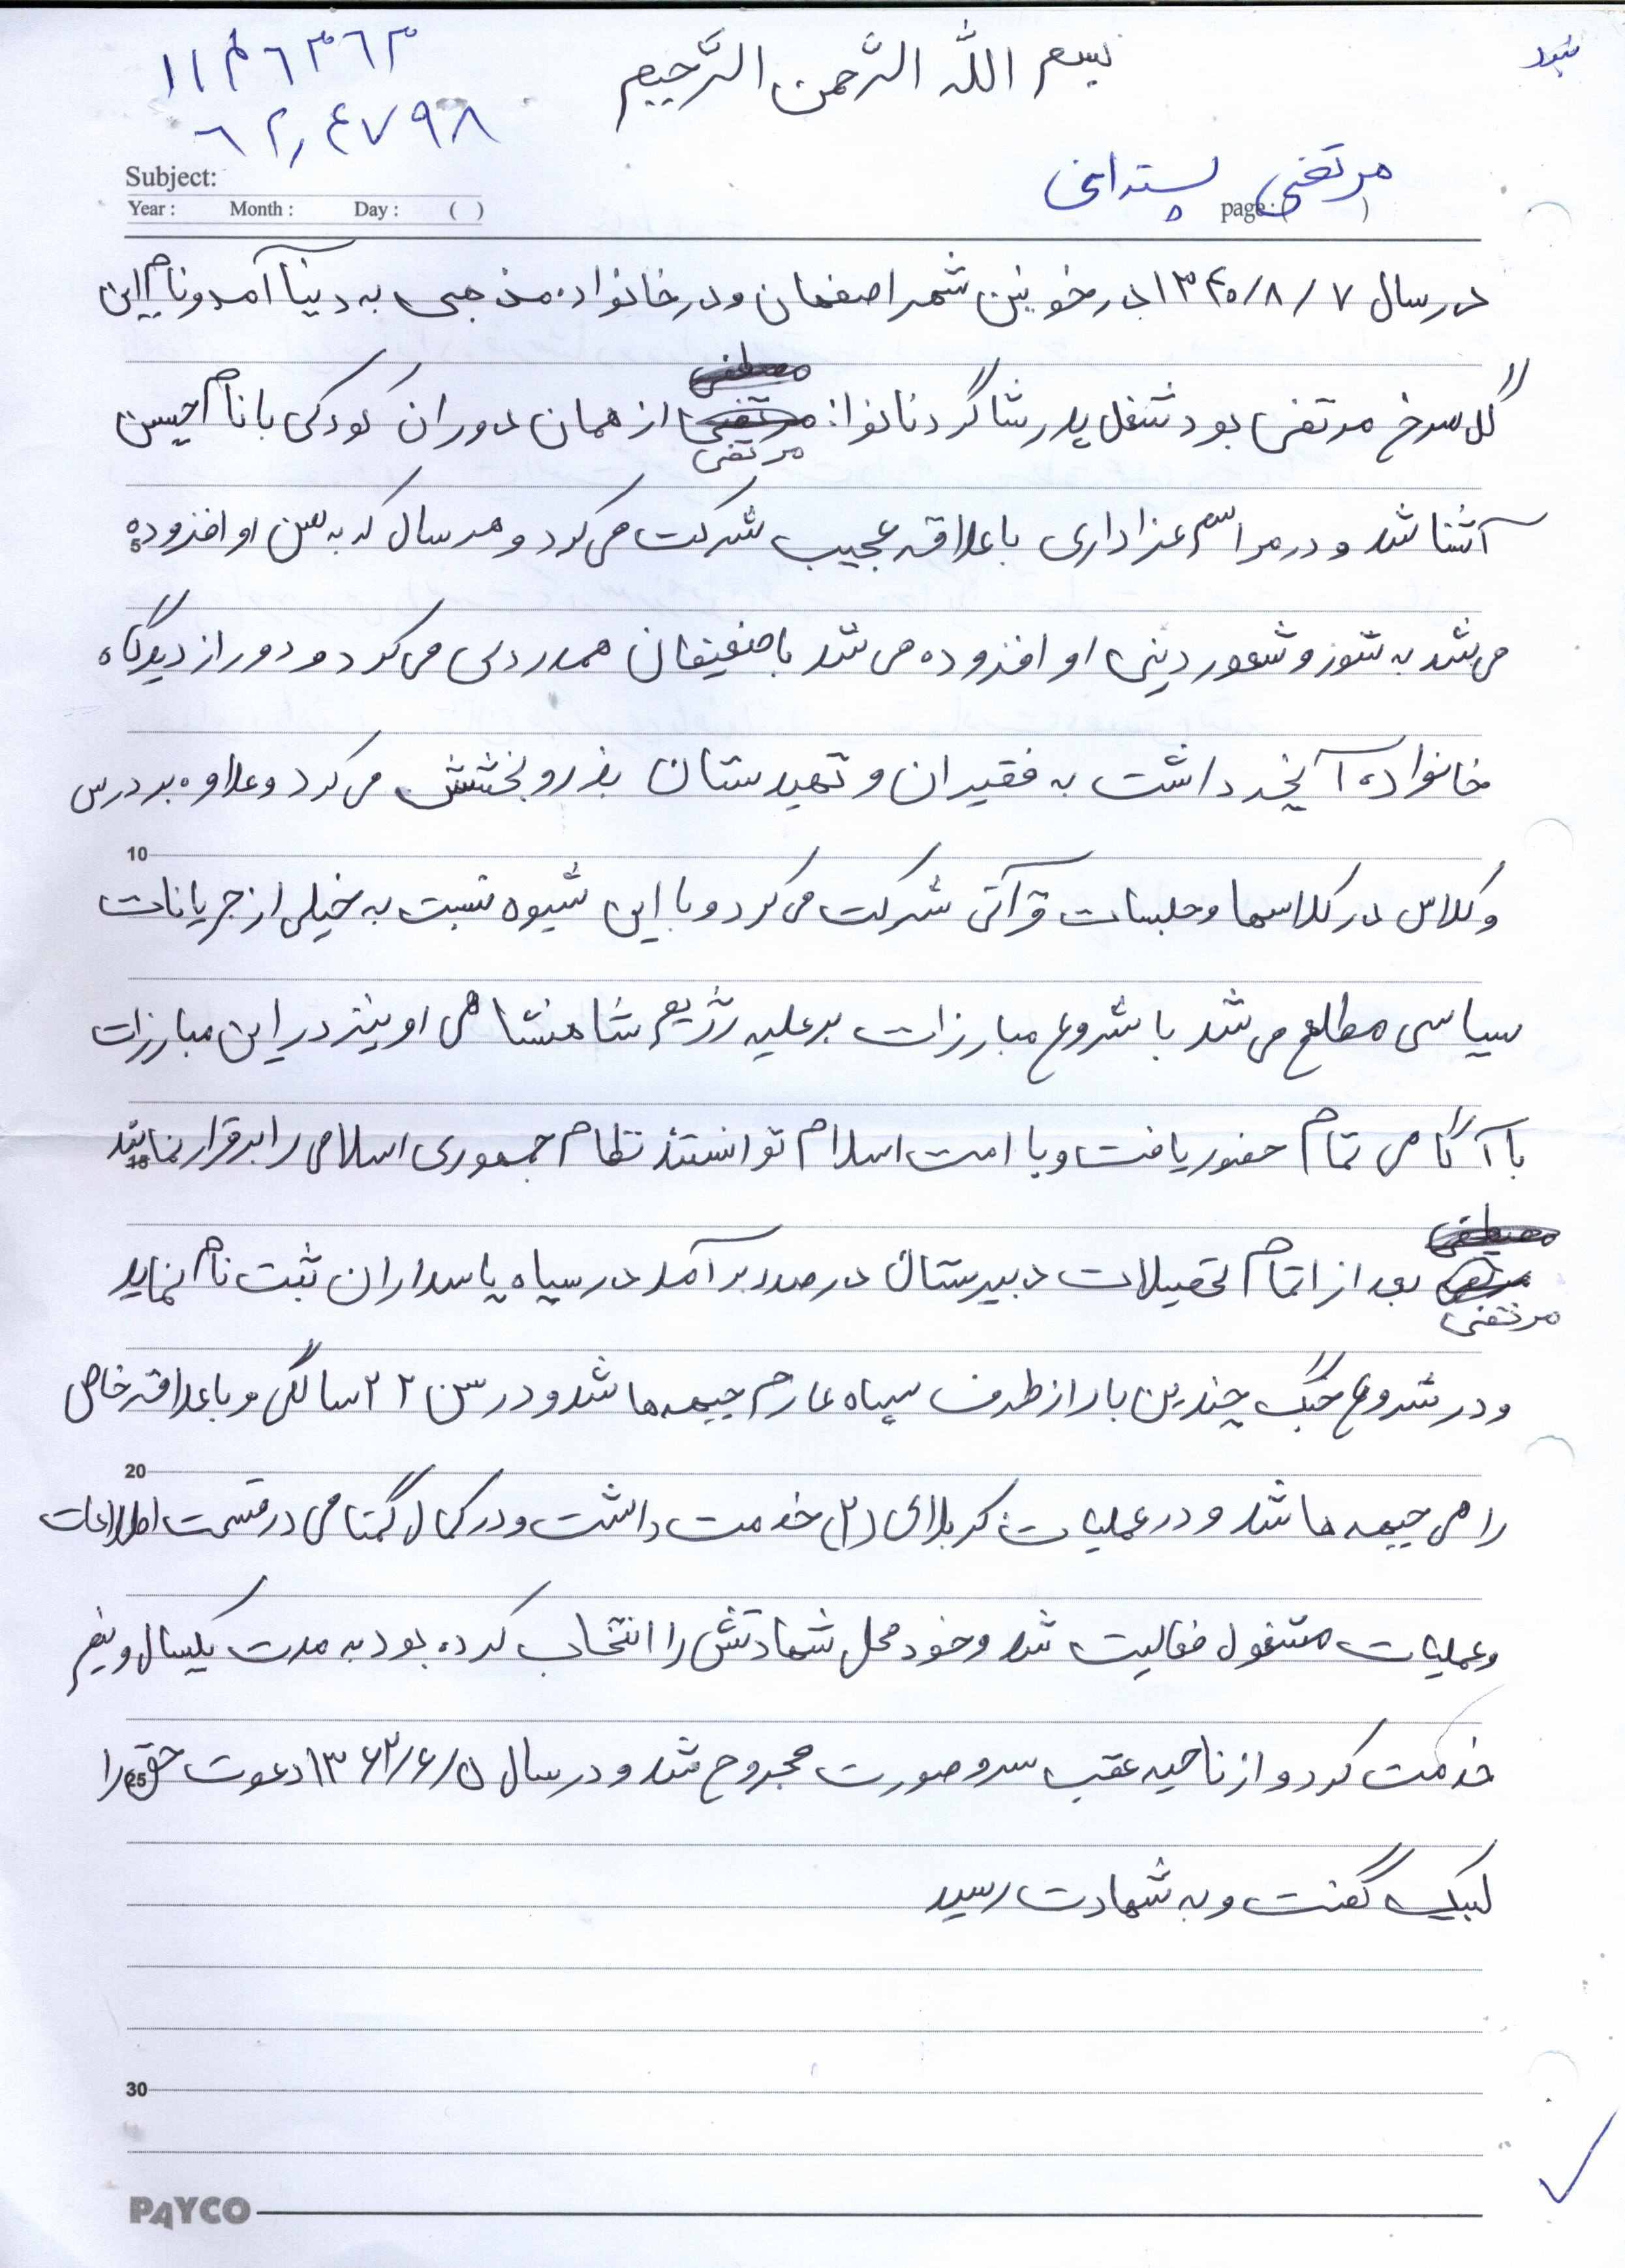 بسم الله الرّحمن الرّحیم
مرتضی
Subject:
Year : Month : Day : ( )
page : ( )
در سال ۱۳۴۰/۸/۷ در خونین شهر اصفهان و در خانواده مذهبی به دنیا آمد و نام این
گل سرخ مرتضی بود شغل پدر شاگرد نانوا: مرتضی از همان دوران کودکی با نام حسین
آشنا شد و در مراسم عزاداری با علاقه عجیب شرکت می کرد و هر سال که به سن او افزوده
5
می شد به شوز و شعور دینی او افزوده می شد با ضعیفان همدردی می کرد و دور از دیدگاه
خانواده آنچه داشت به فقیران و تهیدستان بذر و بخشش می کرد و علاوه بر درس
10
و کلاس در کلاسها و جلسات قرآنی شرکت می کرد و با این شیوه نسبت به خیلی از جریانات
سیاسی مطلع می شد با شروع مبارزات بر علیه رژیم شاهنشاهی او نیز در این مبارزات
با آگاهی تمام حضور یافت و با امت اسلام توانستند نظام جمهوری اسلامی را برقرار نمایند
15
مرتضی بعد از اتمام تحصیلات دبیرستان درصدد برآمد در سپاه پاسداران ثبت نام نماید
و در شروع جنگ چندین بار از طرف سپاه عازم جبهه ها شد و در سن ۲۲ سالگی و با علاقه خاص
20
راهی جبهه ها شد و در عملیات کربلای (۲) خدمت داشت و در کمال گمنامی در قسمت اطلاعات
و عملیات مشغول فعالیت شد و خود محل شهادتش را انتخاب کرده بود به مدت یکسال و نیم
خدمت کرد و از ناحیه عقب سر و صورت مجروح شد و در سال ۱۳۶۲/۶/۵ دعوت حق را
25
لبیک گفت و به شهادت رسید
30
PAYCO